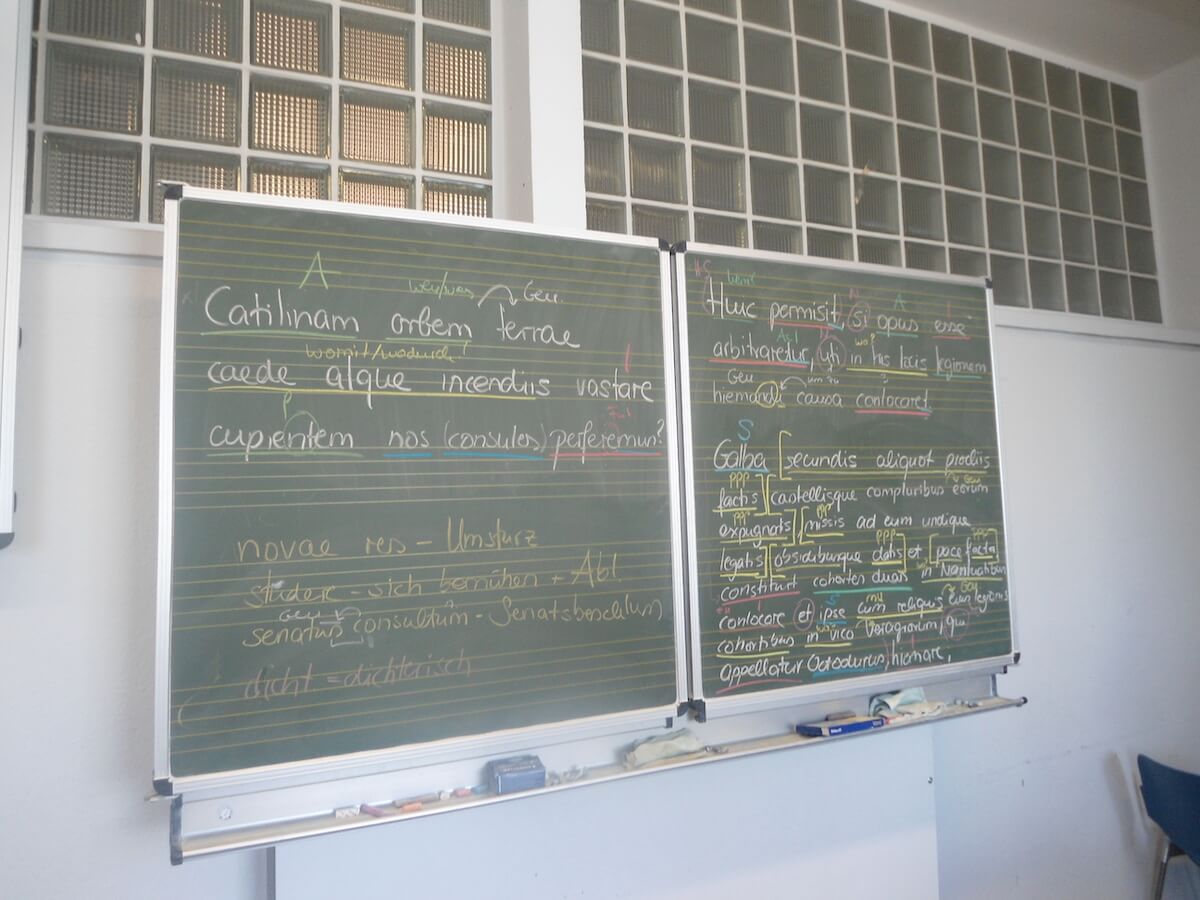 A
wen/was Gen.
Catilinam orbem terrae
womit/wodurch?
caede atque incendiis vastare
P
cupientem nos (consules) perferemus?
novae res - Umsturz
studere - sich bemühen + Abl.
Gen
senatus consultum - Senatsbeschluss
dicht. = dichterisch
HS wem?
Huic permisit, si opus esse
AcI wo?
arbitraretur, uti in his locis legionem
Gen um zu
hiemandi causa conlocaret
S
Galba [secundis aliquot proeliis
PPP Gen
factis] [castellisque compluribus eorum
PPP PPP
expugnatis] [missis ad eum undique
PPP PPP
legatis] [obsidibusque datis] et [pace facta]
constituit cohortes duas in Nantuatibus
S mit Gen
conlocare et ipse cum reliquis eius legionis
cohortibus in vico Veragrorum, qui
appellatur Octodurus, hiemare,